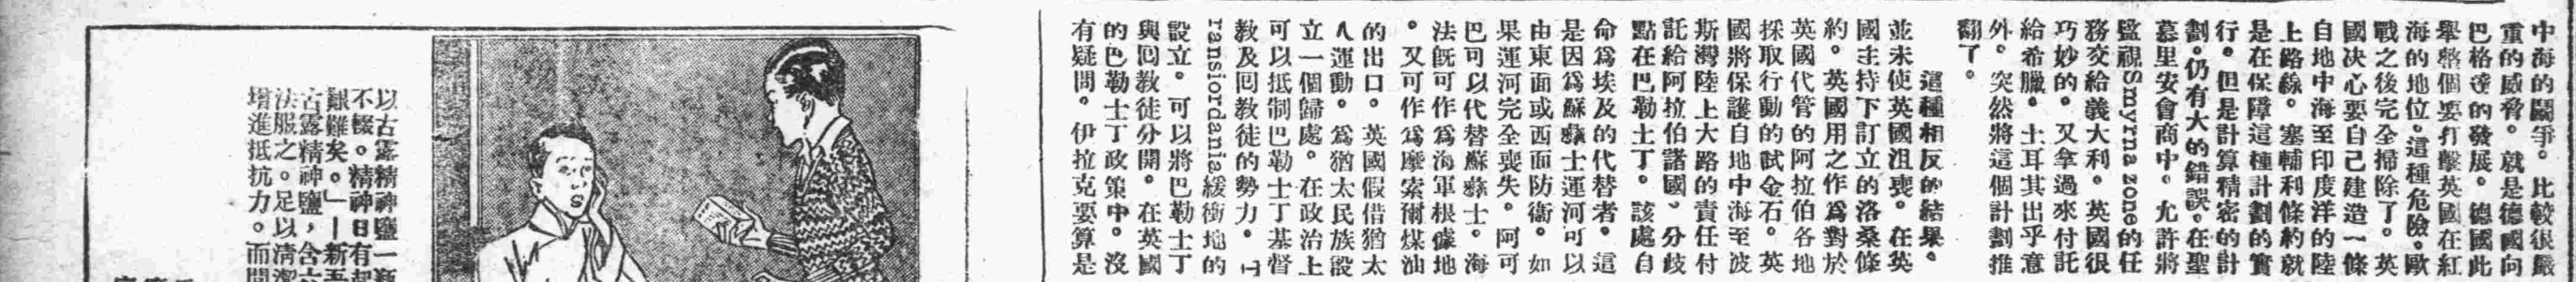 中海的鬭爭。比較很嚴
重的威脅。就是德國向
巴格達的發展。德國此
舉整個要打擊英國在紅
海的地位。這種危險。歐
戰之後完全掃除了。英
國决心要自己建造一條
自地中海至印度洋的陸
上路線。塞輔利條約就
是在保障這種計劃的實
行。但是計算精密的計
劃。仍有大的錯誤。在聖
慕里安會商中。允許將
監視Smyrna zone的任
務交給義大利。英國很
巧妙的。又拿過來付託
給希臘。土耳其出乎意
外。突然將這個計劃推
翻了。
這種相反的結果。
並未使英國沮喪。在英
國主持下訂立的洛桑條
約。英國用之作爲對於
英國代管的阿拉伯各地
採取行動的試金石。英
國將保護自地中海至波
斯灣陸上大路的責任付
託給阿拉伯諸國、分歧
點在巴勒士丁。該處自
命爲埃及的代替者。這
是因爲蘇彝士運河可以
由東面或西面防衞。如
果運河完全喪失。阿可
巴可以代替蘇彝士。海
法旣可作爲海軍根據地
。又可作爲摩索爾煤油
的出口。英國假借猶太
人運動。爲猶太民族設
立一個歸處。在政治上
可以抵制巴勒士丁基督
教及囘教徒的勢力。T
ransiordania緩衝地的
設立。可以將巴勒士丁
與囘教徒分開。在英國
的巴勒士丁政策中。沒
有疑問。伊拉克要算是
以古露精神鹽一瓶
不輟。精神日有起
艱難矣。」—新吾
古露精神鹽，含六
法服之。足以清潔
增進抵抗力。而間